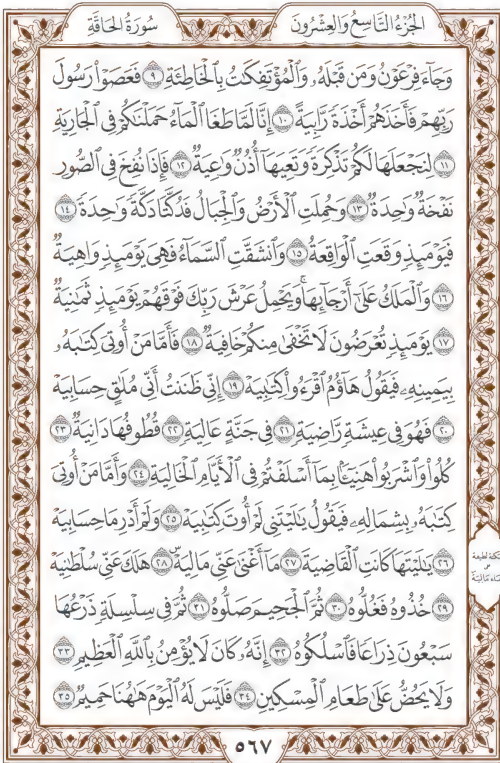 الجُزْءُ التَّاسِعُ وَالعِشْرُونَ
سُورَةُ الحَاقَّةِ
وَجَآءَ فِرْعَوْنُ وَمَن قَبْلَهُۥ وَٱلْمُؤْتَفِكَٰتُ بِٱلْخَاطِئَةِ ٩ فَعَصَوْا۟ رَسُولَ
رَبِّهِمْ فَأَخَذَهُمْ أَخْذَةً رَّابِيَةً ١٠ إِنَّا لَمَّا طَغَا ٱلْمَآءُ حَمَلْنَٰكُمْ فِى ٱلْجَارِيَةِ
١١ لِنَجْعَلَهَا لَكُمْ تَذْكِرَةً وَتَعِيَهَآ أُذُنٌ وَٰعِيَةٌ ١٢ فَإِذَا نُفِخَ فِى ٱلصُّورِ
نَفْخَةٌ وَٰحِدَةٌ ١٣ وَحُمِلَتِ ٱلْأَرْضُ وَٱلْجِبَالُ فَدُكَّتَا دَكَّةً وَٰحِدَةً ١٤
فَيَوْمَئِذٍ وَقَعَتِ ٱلْوَاقِعَةُ ١٥ وَٱنشَقَّتِ ٱلسَّمَآءُ فَهِىَ يَوْمَئِذٍ وَاهِيَةٌ
١٦ وَٱلْمَلَكُ عَلَىٰٓ أَرْجَآئِهَا ۚ وَيَحْمِلُ عَرْشَ رَبِّكَ فَوْقَهُمْ يَوْمَئِذٍ ثَمَٰنِيَةٌ
١٧ يَوْمَئِذٍ تُعْرَضُونَ لَا تَخْفَىٰ مِنكُمْ خَافِيَةٌ ١٨ فَأَمَّا مَنْ أُوتِىَ كِتَٰبَهُۥ
بِيَمِينِهِۦ فَيَقُولُ هَآؤُمُ ٱقْرَءُوا۟ كِتَٰبِيَهْ ١٩ إِنِّى ظَنَنتُ أَنِّى مُلَٰقٍ حِسَابِيَهْ
٢٠ فَهُوَ فِى عِيشَةٍ رَّاضِيَةٍ ٢١ فِى جَنَّةٍ عَالِيَةٍ ٢٢ قُطُوفُهَا دَانِيَةٌ ٢٣
كُلُوا۟ وَٱشْرَبُوا۟ هَنِيٓـًٔۢا بِمَآ أَسْلَفْتُمْ فِى ٱلْأَيَّامِ ٱلْخَالِيَةِ ٢٤ وَأَمَّا مَنْ أُوتِىَ
كِتَٰبَهُۥ بِشِمَالِهِۦ فَيَقُولُ يَٰلَيْتَنِى لَمْ أُوتَ كِتَٰبِيَهْ ٢٥ وَلَمْ أَدْرِ مَا حِسَابِيَهْ
٢٦ يَٰلَيْتَهَا كَانَتِ ٱلْقَاضِيَةَ ٢٧ مَآ أَغْنَىٰ عَنِّى مَالِيَهْ ۜ ٢٨ هَلَكَ عَنِّى سُلْطَٰنِيَهْ
٢٩ خُذُوهُ فَغُلُّوهُ ٣٠ ثُمَّ ٱلْجَحِيمَ صَلُّوهُ ٣١ ثُمَّ فِى سِلْسِلَةٍ ذَرْعُهَا
سَبْعُونَ ذِرَاعًا فَٱسْلُكُوهُ ٣٢ إِنَّهُۥ كَانَ لَا يُؤْمِنُ بِٱللَّهِ ٱلْعَظِيمِ ٣٣
وَلَا يَحُضُّ عَلَىٰ طَعَامِ ٱلْمِسْكِينِ ٣٤ فَلَيْسَ لَهُ ٱلْيَوْمَ هَٰهُنَا حَمِيمٌ ٣٥
لطيفة
مَالِيَهْ
٥٦٧